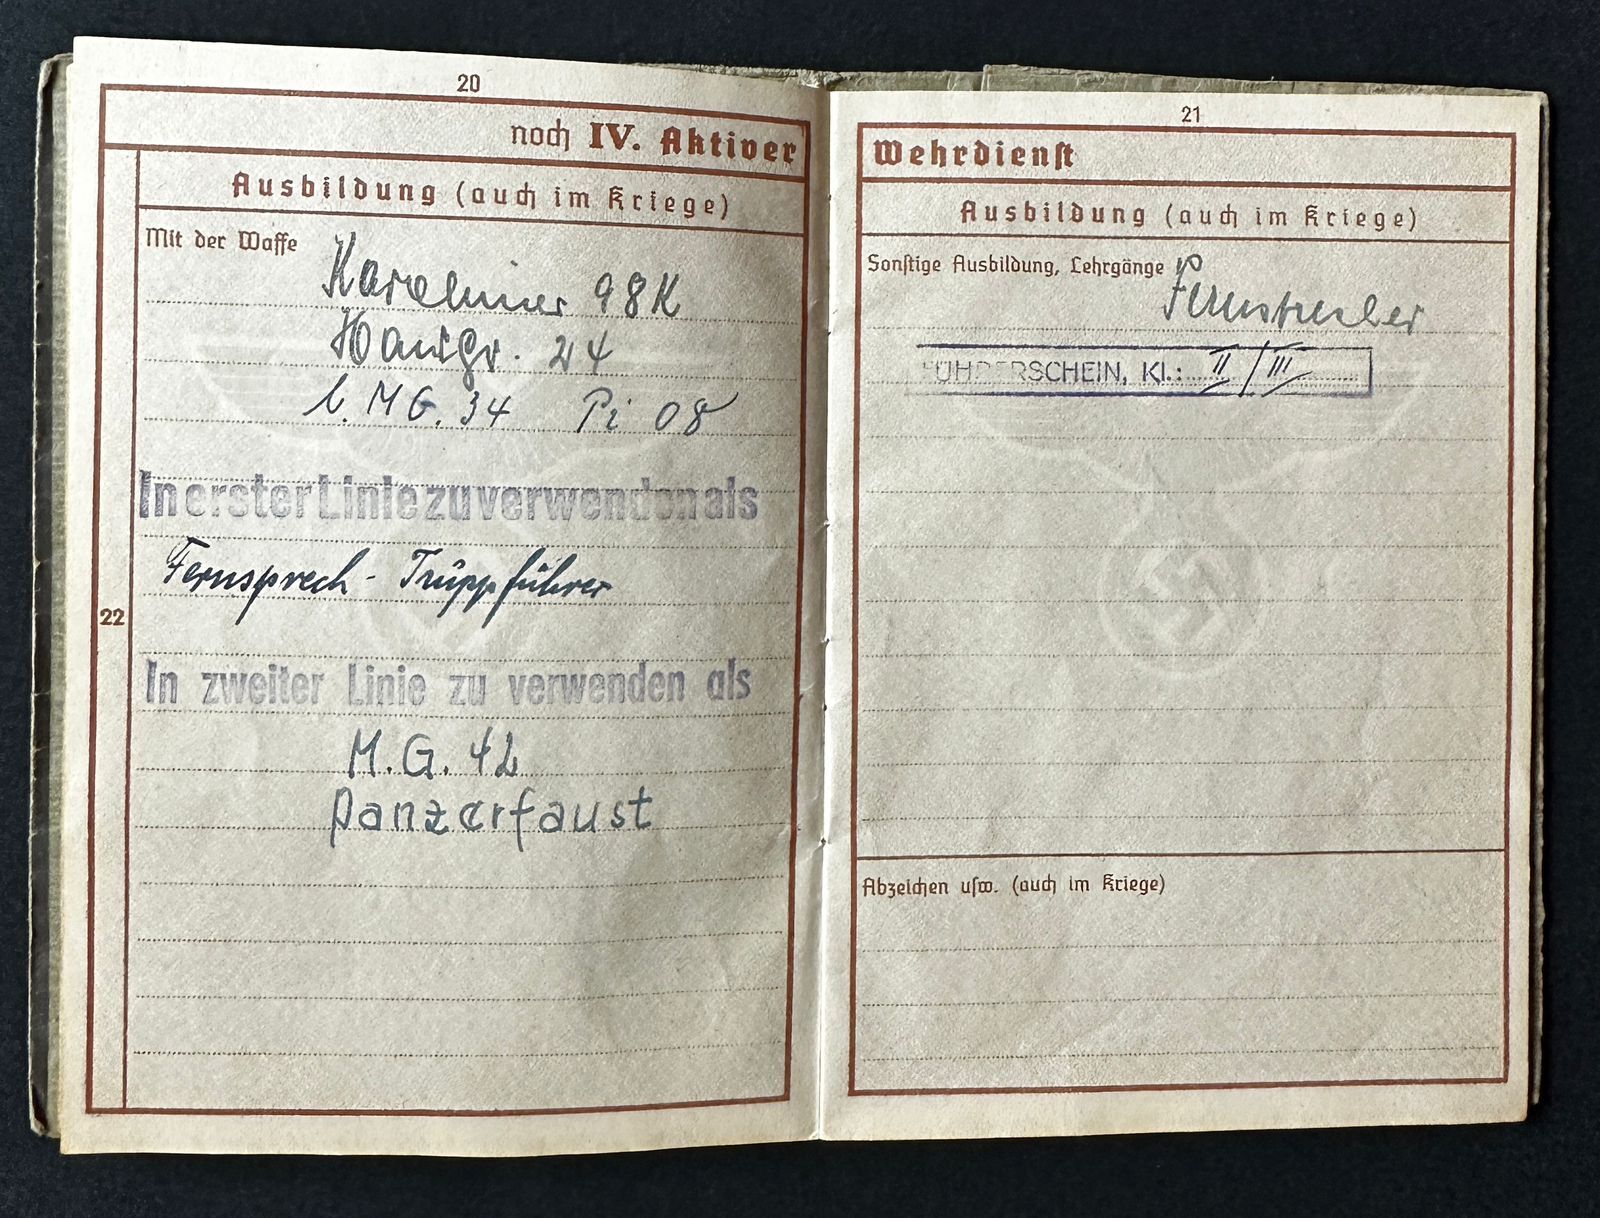 20
noch IV. Aktiver
Ausbildung (auch im Kriege)
Mit der Waffe
Karabiner 98K
Handgr. 24
l. M G. 34 Pi 08
In erster Linie zu verwenden als
Fernsprech - Truppführer
22
In zweiter Linie zu verwenden als
M. G. 42
Panzerfaust
21
Wehrdienst
Ausbildung (auch im Kriege)
Sonstige Ausbildung, Lehrgänge
FÜHRERSCHEIN, Kl.: II / III
Abzeichen usw. (auch im Kriege)